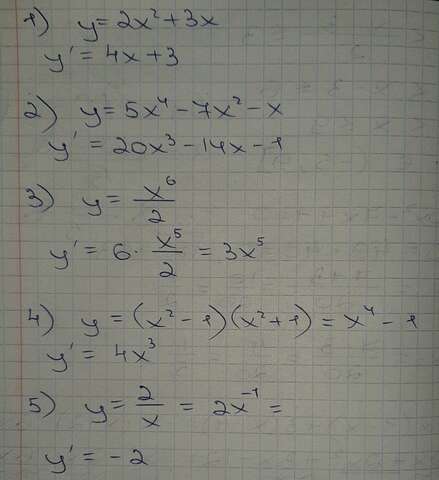 1) y = 2x² + 3x
y' = 4x + 3
2) y = 5x⁴ - 7x² - x
y' = 20x³ - 14x - 1
3) y = x⁶/2
y' = 6 · x⁵/2 = 3x⁵
4) y = (x² - 1)(x² + 1) = x⁴ - 1
y' = 4x³
5) y = 2/x = 2x⁻¹ =
y' = -2